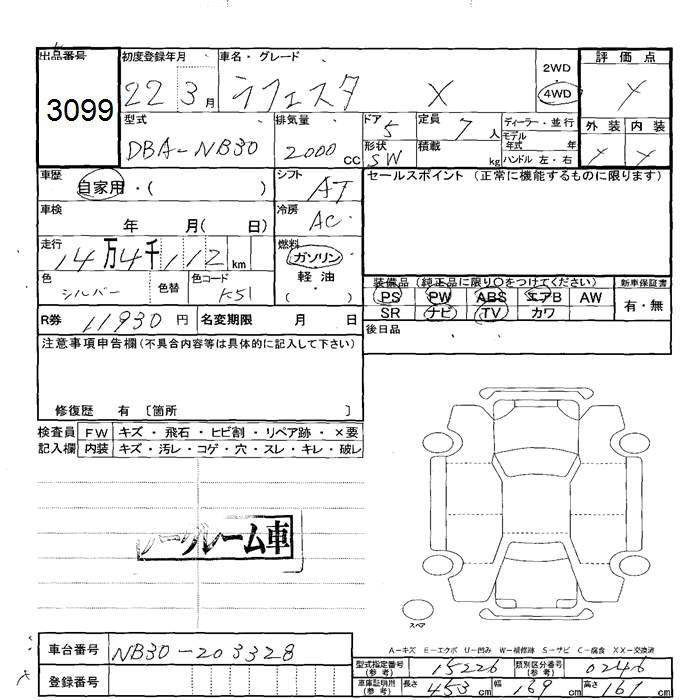 出品番号 初度登録年月 車名・グレード 評価点
3099 22 3月 ラフェスタ X 2WD 4WD
型式 排気量 ドア 5 定員 7人 ディーラー・並行 外装 内装
DBA-NB30 2000cc 形状 SW 積載 kg モデル年式 年 ハンドル 左・右
車歴 自家用・( ) シフト AT セールスポイント (正常に機能するものに限ります)
車検 年 月( 日) 冷房 AC
走行 14万4千112km 燃料 ガソリン 軽油 ( )
色 シルバー 色替 色コード K51
装備品 (純正品に限り○をつけてください) 新車保証書
PS PW ABS エアB AW 有・無
SR ナビ TV カワ
R券 11930円 名変期限 月 日 後日品
注意事項申告欄(不具合内容等は具体的に記入して下さい)
修復歴 有 〔箇所 〕
検査員 FW キズ・飛石・ヒビ割・リペア跡・×要
記入欄 内装 キズ・汚レ・コゲ・穴・スレ・キレ・破レ
レーグレーム車
スペア
A-キズ E-エクボ U-凹み W-補修跡 S-サビ C-腐食 XX-交換済
車台番号 NB30-203328
型式指定番号(参考) 15226 類別区分番号(参考) 0246
登録番号
車庫証明用(参考) 長さ 453cm 幅 169cm 高さ 161cm